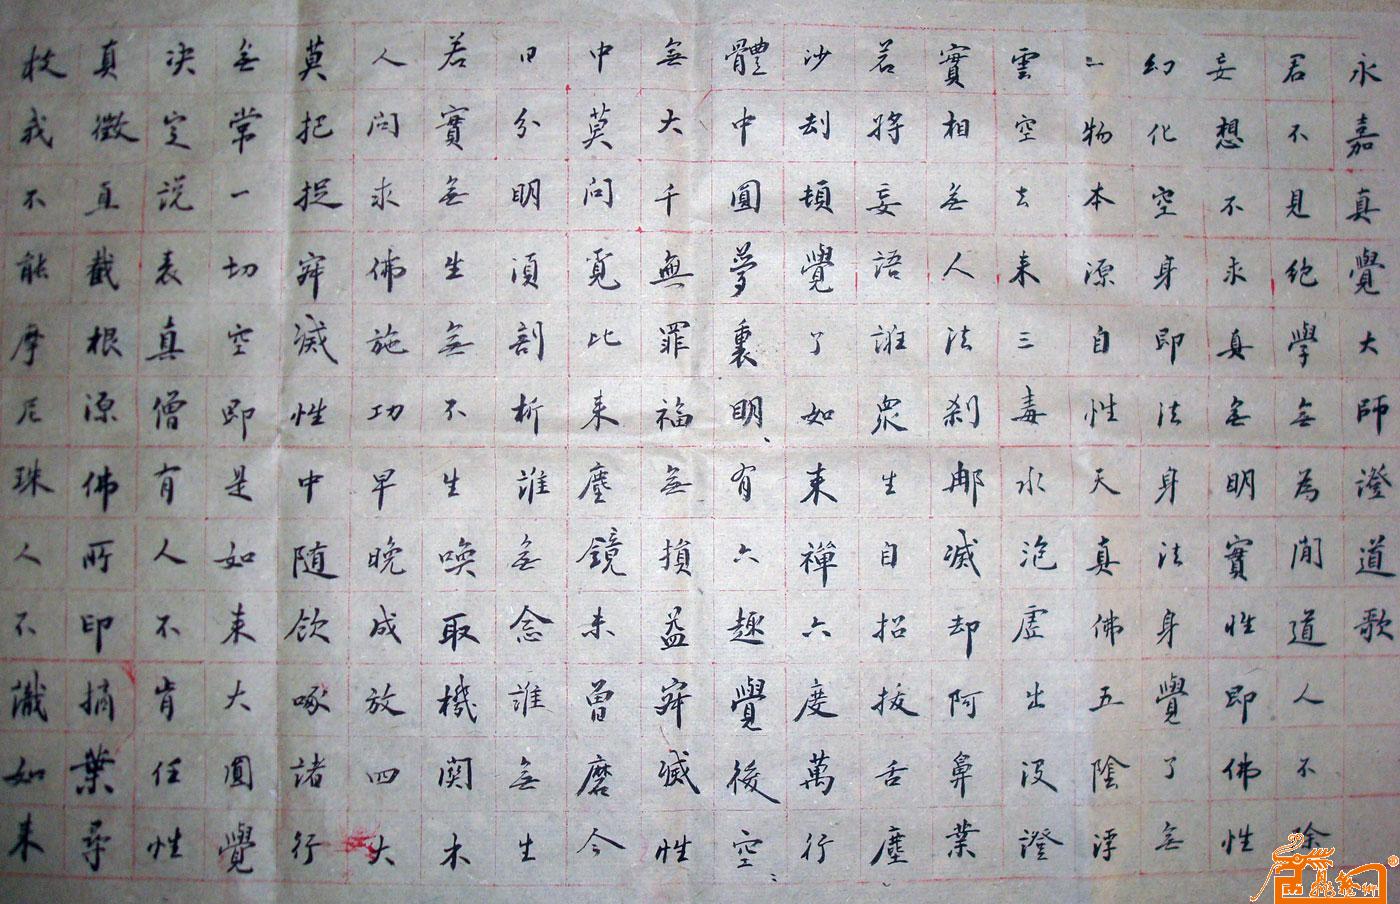 永嘉真覺大師證道歌
君不見絕學無為閒道人不除
妄想不求真無明實性即佛性
幻化空身即法身法身覺了無
一物本源自性天真佛五陰浮
雲空去来三毒水泡虛出沒證
實相無人法剎那滅却阿鼻業
若將妄語誑眾生自招拔舌塵
沙刧頓覺了如来禪六度萬行
體中圓夢裏明、有六趣覺後空、
無大千無罪福無損益寂滅性
中莫問覓比来塵鏡未曾磨今
日分明須剖析誰無念誰無生
若實無生無不生喚取機關木
人問求佛施功早晚成放四大
莫把捉寂滅性中随飲啄諸行
無常一切空即是如来大圓覺
决定說表真僧有人不肯任性
真徵直截根源佛所印摘葉尋
枝我不能摩尼珠人不識如来